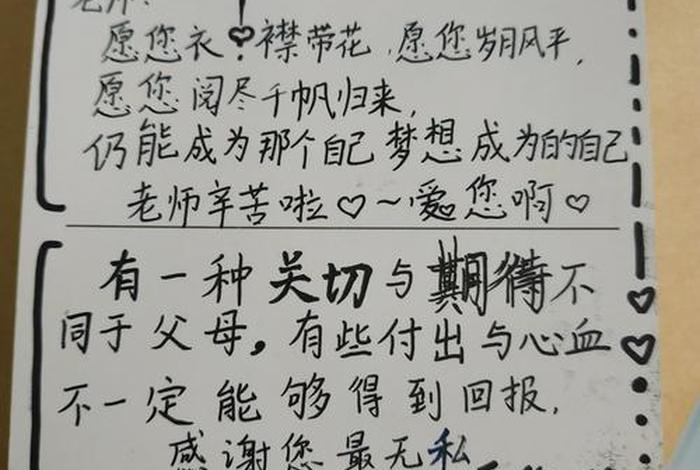 老师:
愿您衣襟带花,愿您岁月风平,
愿您阅尽千帆归来,
仍能成为那个自己梦想成为的自己
老师辛苦啦♡~爱您啊♡
有一种关切与期待不
同于父母,有些付出与心血
不一定能够得到回报,
感谢您最无私